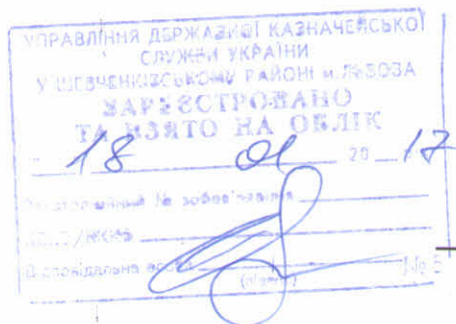 УПРАВЛІННЯ ДЕРЖАВНОЇ КАЗНАЧЕЙСЬКОЇ
СЛУЖБИ УКРАЇНИ
У ШЕВЧЕНКІВСЬКОМУ РАЙОНІ м.ЛЬВОВА
ЗАРЕЄСТРОВАНО
ТА ВЗЯТО НА ОБЛІК
" 18 01 20 17
№ зобов'язання
Відповідальна особа
(підпис)